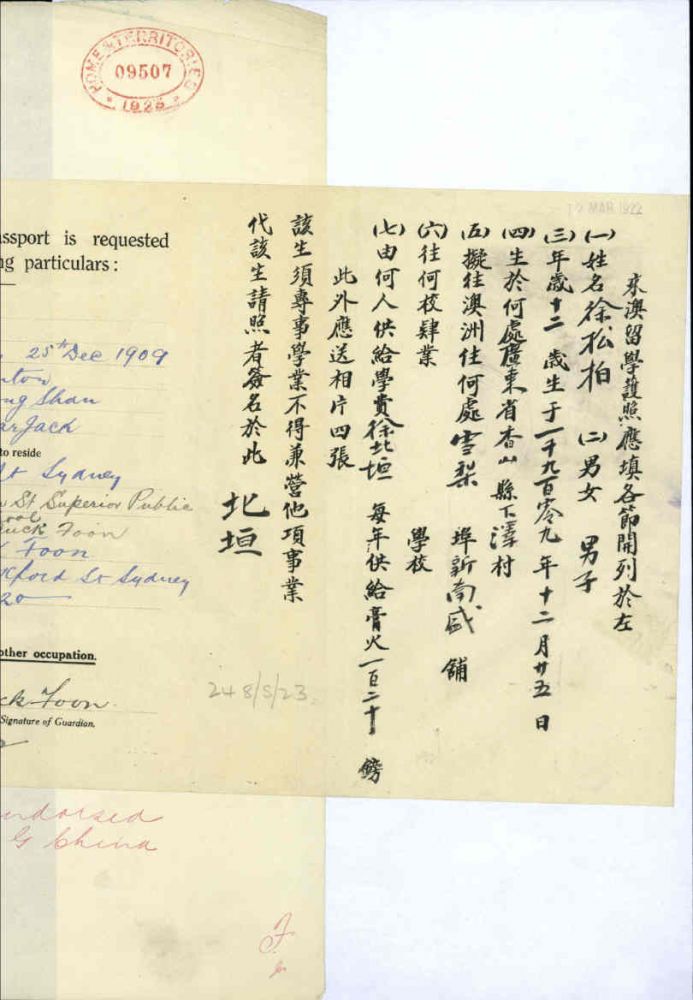 HOME & TERRITORIES
09507
1923
12 MAR 1922
來澳留學護照應填各節開列於左
(一)姓名徐松柏 (二)男女 男子
(三)年歲十二歲生于一千九百零九年十二月廿五日
(四)生於何處廣東省香山縣下澤村
(五)擬往澳洲住何處雪梨埠新南盛舖
(六)往何校肄業 學校
(七)由何人供給學費徐北垣 每年供給膏火一百二十鎊
此外應送相片四張
該生須專事學業不得兼營他項事業
代該生請照者簽名於此 北垣
assport is requested
ng particulars:
25th Dec 1909
nton
ng Shan
ar Jack
to reside
Sydney
St Superior Public
uck Foon
Foon
kford St Sydney
20
other occupation.
ck Foon
Signature of Guardian.
248/S/23
ndorsed
China